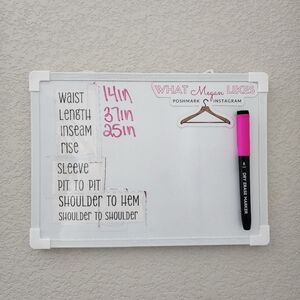 WHAT Megan LIKES
POSHMARK INSTAGRAM
WAIST 14in
LENGTH 37in
INSEAM 25in
RISE
SLEEVE
PIT TO PIT
SHOULDER TO HEM
SHOULDER TO SHOULDER
DRY ERASE MARKER